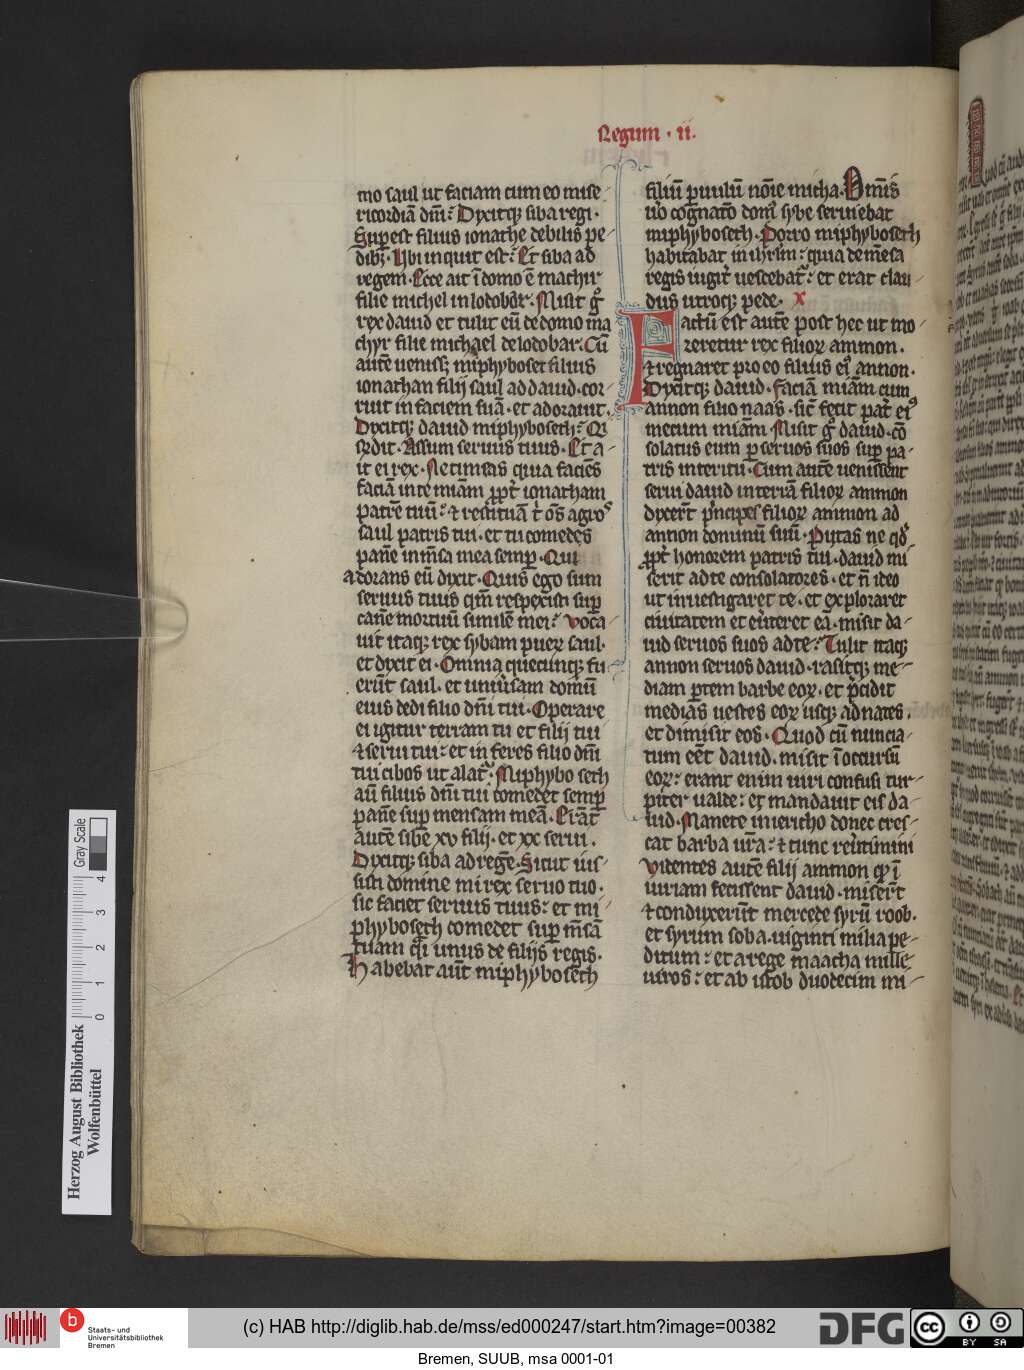 Regum · ii.
mo saul ut faciam cum eo mise
ricordiā dni᷑ Dixitq; siba regi·
Supest filius ionathe debilis pe
dib᷒· Ubi inquit est᷑ Et siba ad
regem· Ecce ait ī domo ē machir
filie michel in lodobar᷑· Misit g̊
rex dauid et tulit eū de domo ma
chyr filie michael de lodobar᷑· Cū
autē ueniss; miphyboset filius
ionathan filij saul ad dauid· cor
ruit in faciem suā· et adorauit·
Dixitq; dauid miphyboseth᷑ Qi
rādit· Assum seruus tuus· Et a
it ei rex· Ne timeas quia faciēs
faciā in te miam ꝓpt̄ ionatham
patrē tuū᷑ ⁊ restituā t̄ oēs agros
saul patris tui· et tu comedes
panē in msa mea semp· Qui
adorans eū dixit· Quis ego sum
seruus tuus qm̄ respexisti sup
canē mortuū similē mei᷑ voca
uit itaq; rex sybam pueꝝ saul·
et dixit ei· Omnia quecunq; fu
erūt saul· et uniūsam domū
eius dedi filio dn̄i tui· Operare
ei igitur terram tu et filij tui
⁊ serui tui᷑ et inferes filio dn̄i
tui cibos ut alat᷑· Miphyboseth
aū filius dn̄i tui comedet semp
panē sup mensam meā· Erāt
autē sibe xv filij· et xx serui·
Dixitq; siba ad regē· Sicut ius
sisti domine mi rex seruo tuo·
sic faciet seruus tuus᷑ et mi
phyboseth comedet sup mēsā
tuam q̄i unus de filijs regis·
Habebat aūt miphyboseth
filiū puulū noīe micha· Omīs
ūo cognatō dom᷒ sybe seruiebat
miphyboseth· Porro miphyboseth
habitabat in ihrlm᷑ quia de mēsa
regis iugit̄ uescebat᷑᷑ et erat clau
dus utroq; pede· x
Factū est autē post hec ut mo
reretur rex filioꝝ ammon·
⁊ regnaret pro eo filius ei᷒ annon·
Dixitq; dauid· faciā miām cum
annon filio naas· sic̄ fecit pat̄ ei᷒
mecum miām Misit g̊ dauid· cō
solatus eum p seruos suos sup pa
tris interitu· Cum autē uenissent
serui dauid in terrā filioꝝ ammon
dixert̄ p̄ncipes filioꝝ ammon ad
annon dominū suū· Putas ne qd̄
ꝓpt̄ honorem patris tui· dauid mi
serit ad te consolatores· et n̄ ideo
ut inuestigaret te· et exploraret
ciuitatem et eūteret eā· misit da
uid seruos suos ad te᷑ Tulit itaq;
annon seruos dauid· rasitq; me
diam ptem barbe eoꝝ· et p̄cidit
medias uestes eoꝝ usq; ad nates·
et dimisit eos· Quod cū nuncia
tum eēt dauid· misit ī occursū
eoꝝ᷑ erant enim uiri confusi tur
piter ualde᷑ et mandauit eis da
uid· Manete in iericho donec cres
cat barba ur̄a᷑ ⁊ tunc reūtimini
Videntes autē filij ammon qp ī
iuriam fecissent dauid· miserūt
⁊ conduxerūt mercede syrū roob·
et syrum soba· uiginti milia pe
ditum᷑ et a rege maacha mille
uiros᷑ et ab istob duodecim mi
Gray Scale
0 1 2 3 4
Herzog August Bibliothek
Wolfenbüttel
b Staats- und
Universitätsbibliothek
Bremen
(c) HAB http://diglib.hab.de/mss/ed000247/start.htm?image=00382
DFG
cc BY SA
Bremen, SUUB, msa 0001-01